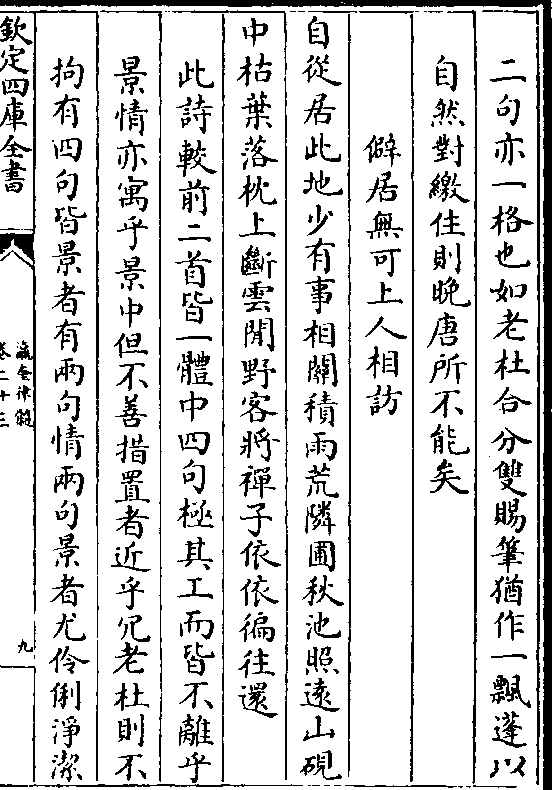 二句亦一格也如老杜合分雙賜筆猶作一飄蓬以
自然對繳住則晚唐所不能矣
僻居無可上人相訪
自從居此地少有事相關積雨荒隣圃秋池照遠山硯
中枯葉落枕上斷雲閒野客將禪子依依徧往還
此詩較前二首皆一體中四句極其工而皆不離乎
景情亦寓乎景中但不善措置者近乎冗老杜則不
拘有四句皆景者有兩句情兩句景者尤伶俐淨潔
欽定四庫全書
瀛奎律髓
卷二十三
九